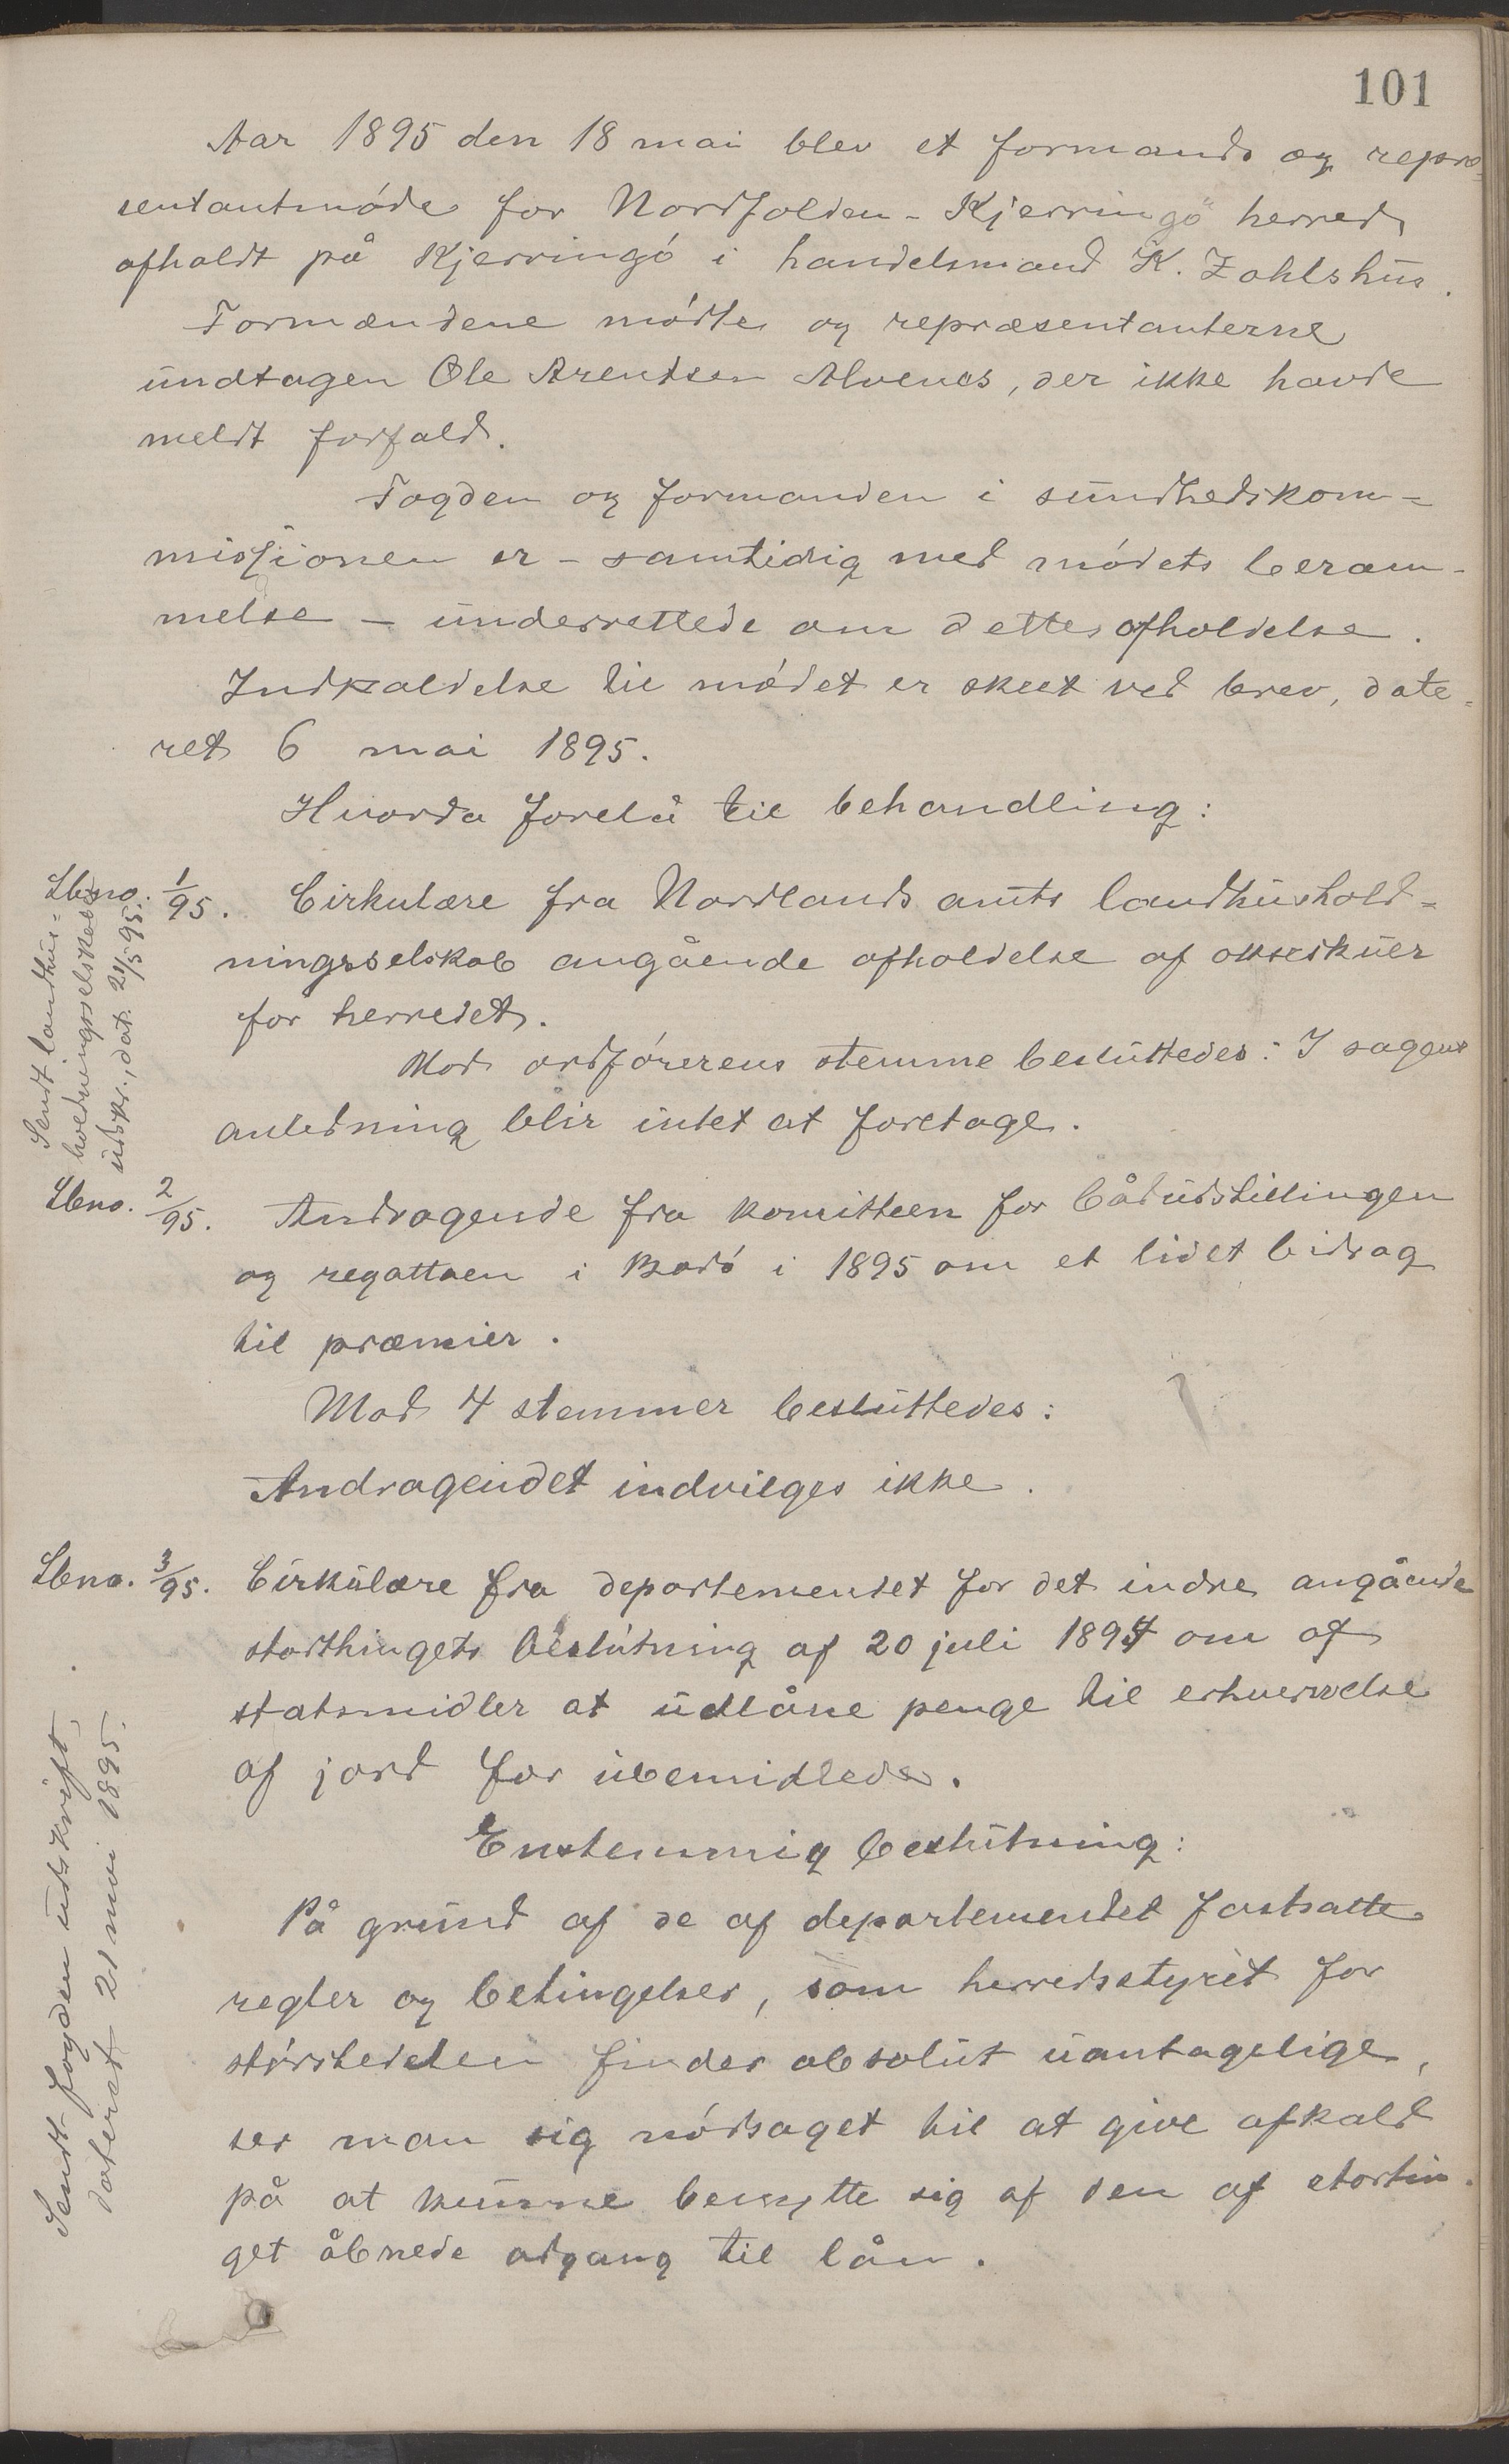 101
Aar 1895 den 18 mai blev et formands og repræ-
sentantmøde for Nordfolden-Kjerringö herred
afholdt på Kjerringø i handelsmand K. Zahlshus.
Formændene mødte og repræsentanterne
undtagen Ole Arentsen Alvenes, der ikke havde
meldt forfald.
Fogden og formanden i sundhedskom-
missionen er - samtidig med mødets beram-
melse - underrettede om dettes afholdelse.
Indkaldelse til mødet er skeet ved brev, date-
ret 6 mai 1895.
Hvorda forelå til behandling:
Lbno. 1/95. Cirkulære fra Nordlands amts landhushold-
ningsselskab angående afholdelse af okseskuer
for herredet.
Mod ordførerens stemme besluttedes: I sagens
anledning blir intet at foretage.
Sendt landhus-
holdningsselskabet
udskr., dat. 21/5 95.
Lbno. 2/95. Andragende fra komitteen for bådudstillingen
og regattaen i Bodø i 1895 om et lidet bidrag
til præmier.
Mod 4 stemmer besluttedes:
Andragendet indvilges ikke.
Lbno. 3/95. Cirkulære fra departementet for det indre angående
storthingets beslutning af 20 juli 1894 om af
statsmidler at udlåne penge til erhvervelse
af jord for ubemidlede.
Enstemmig beslutning:
På grund af de af departementet fastsatte
regler og betingelser, som herredsstyret for
størstedelen finder absolut uantagelige,
ser man sig nødsaget til at give afkald
på at kunne benytte sig af den af stortin-
get åbnede adgang til lån.
Sendt fogden udskrift,
dateret 21 mai 1895.